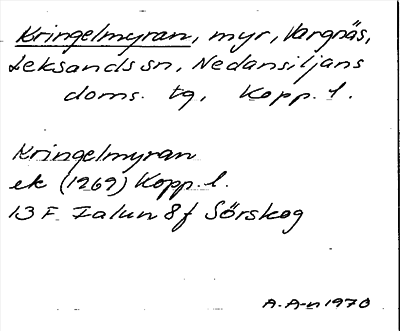 Kringelmyran, myr, Vargnäs,
Leksands sn, Nedansiljans
doms. tg, Kopp. l.
Kringelmyran
ek (1269) Kopp. l.
13 F Falun 8f Sörskog
A. A-n 1970